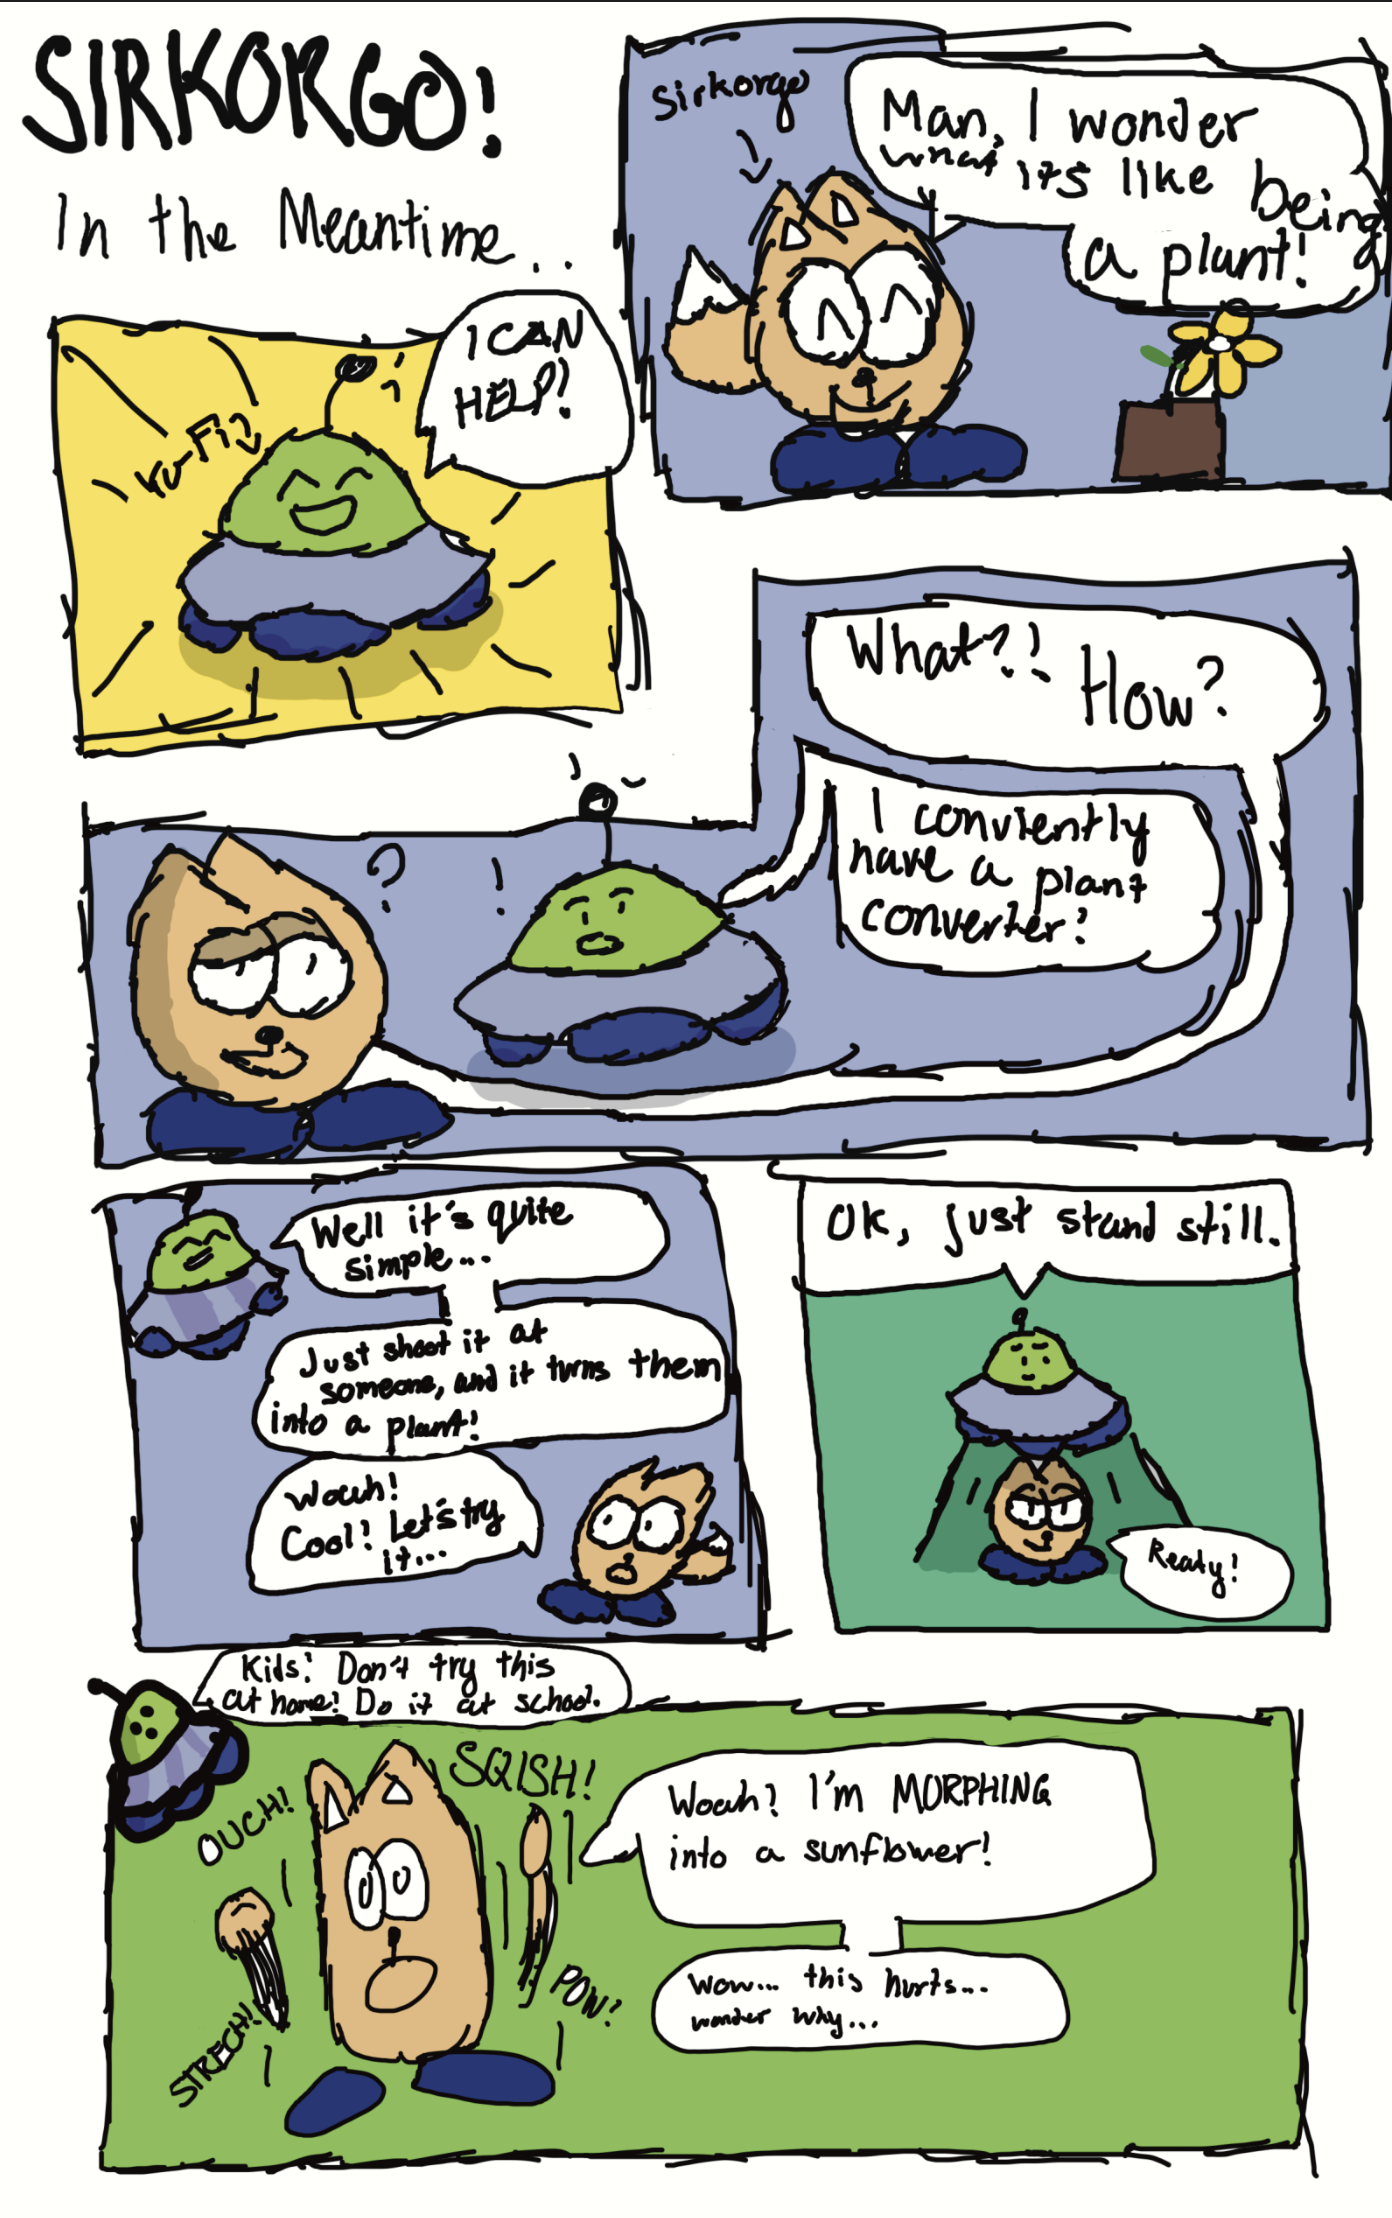 SIRKORGO!
In the Meantime...
Sirkorgo
Man, I wonder
what it's like being
a plant!
Ku-Fi
I CAN
HELP!
What?! How?
?
!
I conviently
have a plant
converter?
Well it's quite
simple...
Just shoot it at
someone, and it turns them
into a plant!
Woah!
Cool! Let's try
it...
OK, just stand still.
Ready!
Kids! Don't try this
at home! Do it at school.
OUCH!
SQISH!
STRECH!
POW!
Woah! I'm MORPHING
into a sunflower!
Wow... this hurts...
wonder why...